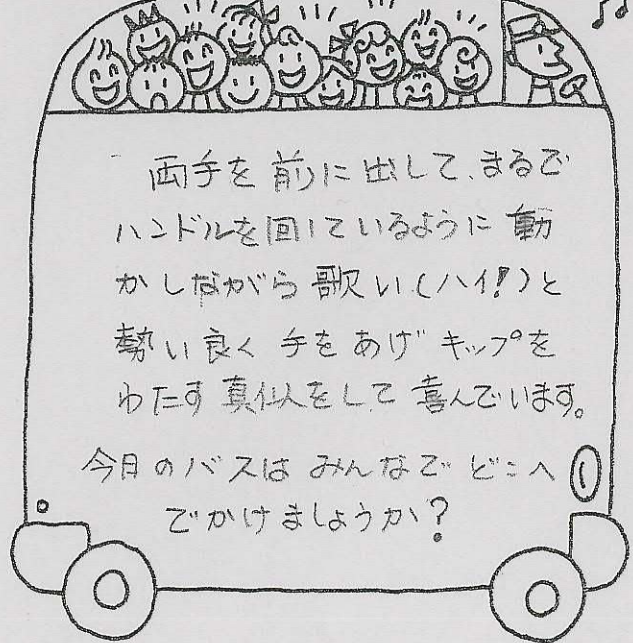 両手を前に出して、まるで
ハンドルを回しているように動
かしながら歌い(ハイ!)と
勢い良く手をあげキップを
わたす真似をして喜んでいます。
今日のバスはみんなでどこへ
でかけましょうか?